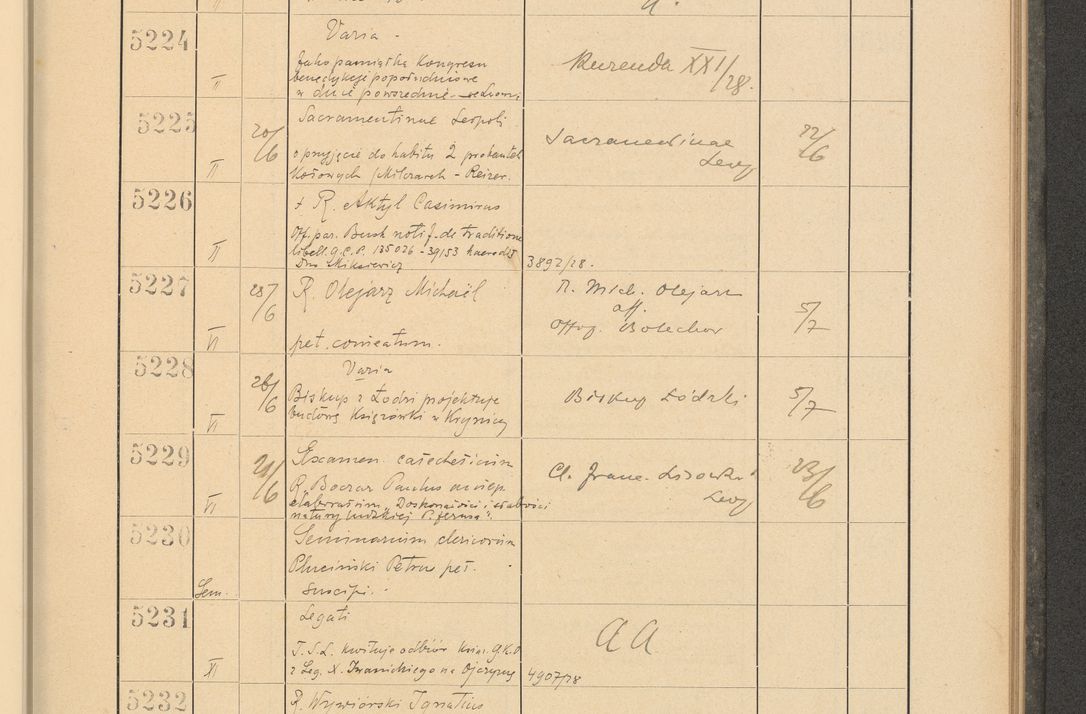 5224
Varia -
Jako pamiątka Kongresu
benedykcje popołudniowe
w dnie powszednie
II
Kurenda XXI/28.
5225
II
20/6
Sacramentinae Leopoli
o przyjęcie do habitu 2 probantek
Kosowych
Sacramentinae
Leop
22/6
5226
II
+ R. Aktyl Casimirus
Off. par. Busk notif. de traditione
libell. G.C.P. 135026 - 39153 haeredi
Dno Mikiewicz
3892/28.
5227
VI
28/6
R. Olejarz Michaël
pet. comeatum.
R. Mich. Olejarz
off.
Bolechow
5/7
5228
VI
26/6
Varia
Biskup z Łodzi projektuje
budowę Księżówki w Krynicy
Biskup Łódzki
5/7
5229
VI
21/6
Examen catecheticum
R. Boczar Paulus
elaboratum "Doskonałości i słabości
natury ludzkiej P. Jezusa".
Cl. Franc. Lisowski
Leop
23/6
5230
Sem.
Seminarium clericorum
Pluciński Petrus pet.
suscipi.
5231
XI
Legati
T.S.L. kwituje odbiór
z Leg. X. Iwanickiego na Ojczyznę
4907/28
aa
5232
R. Wywiórski Ignatius